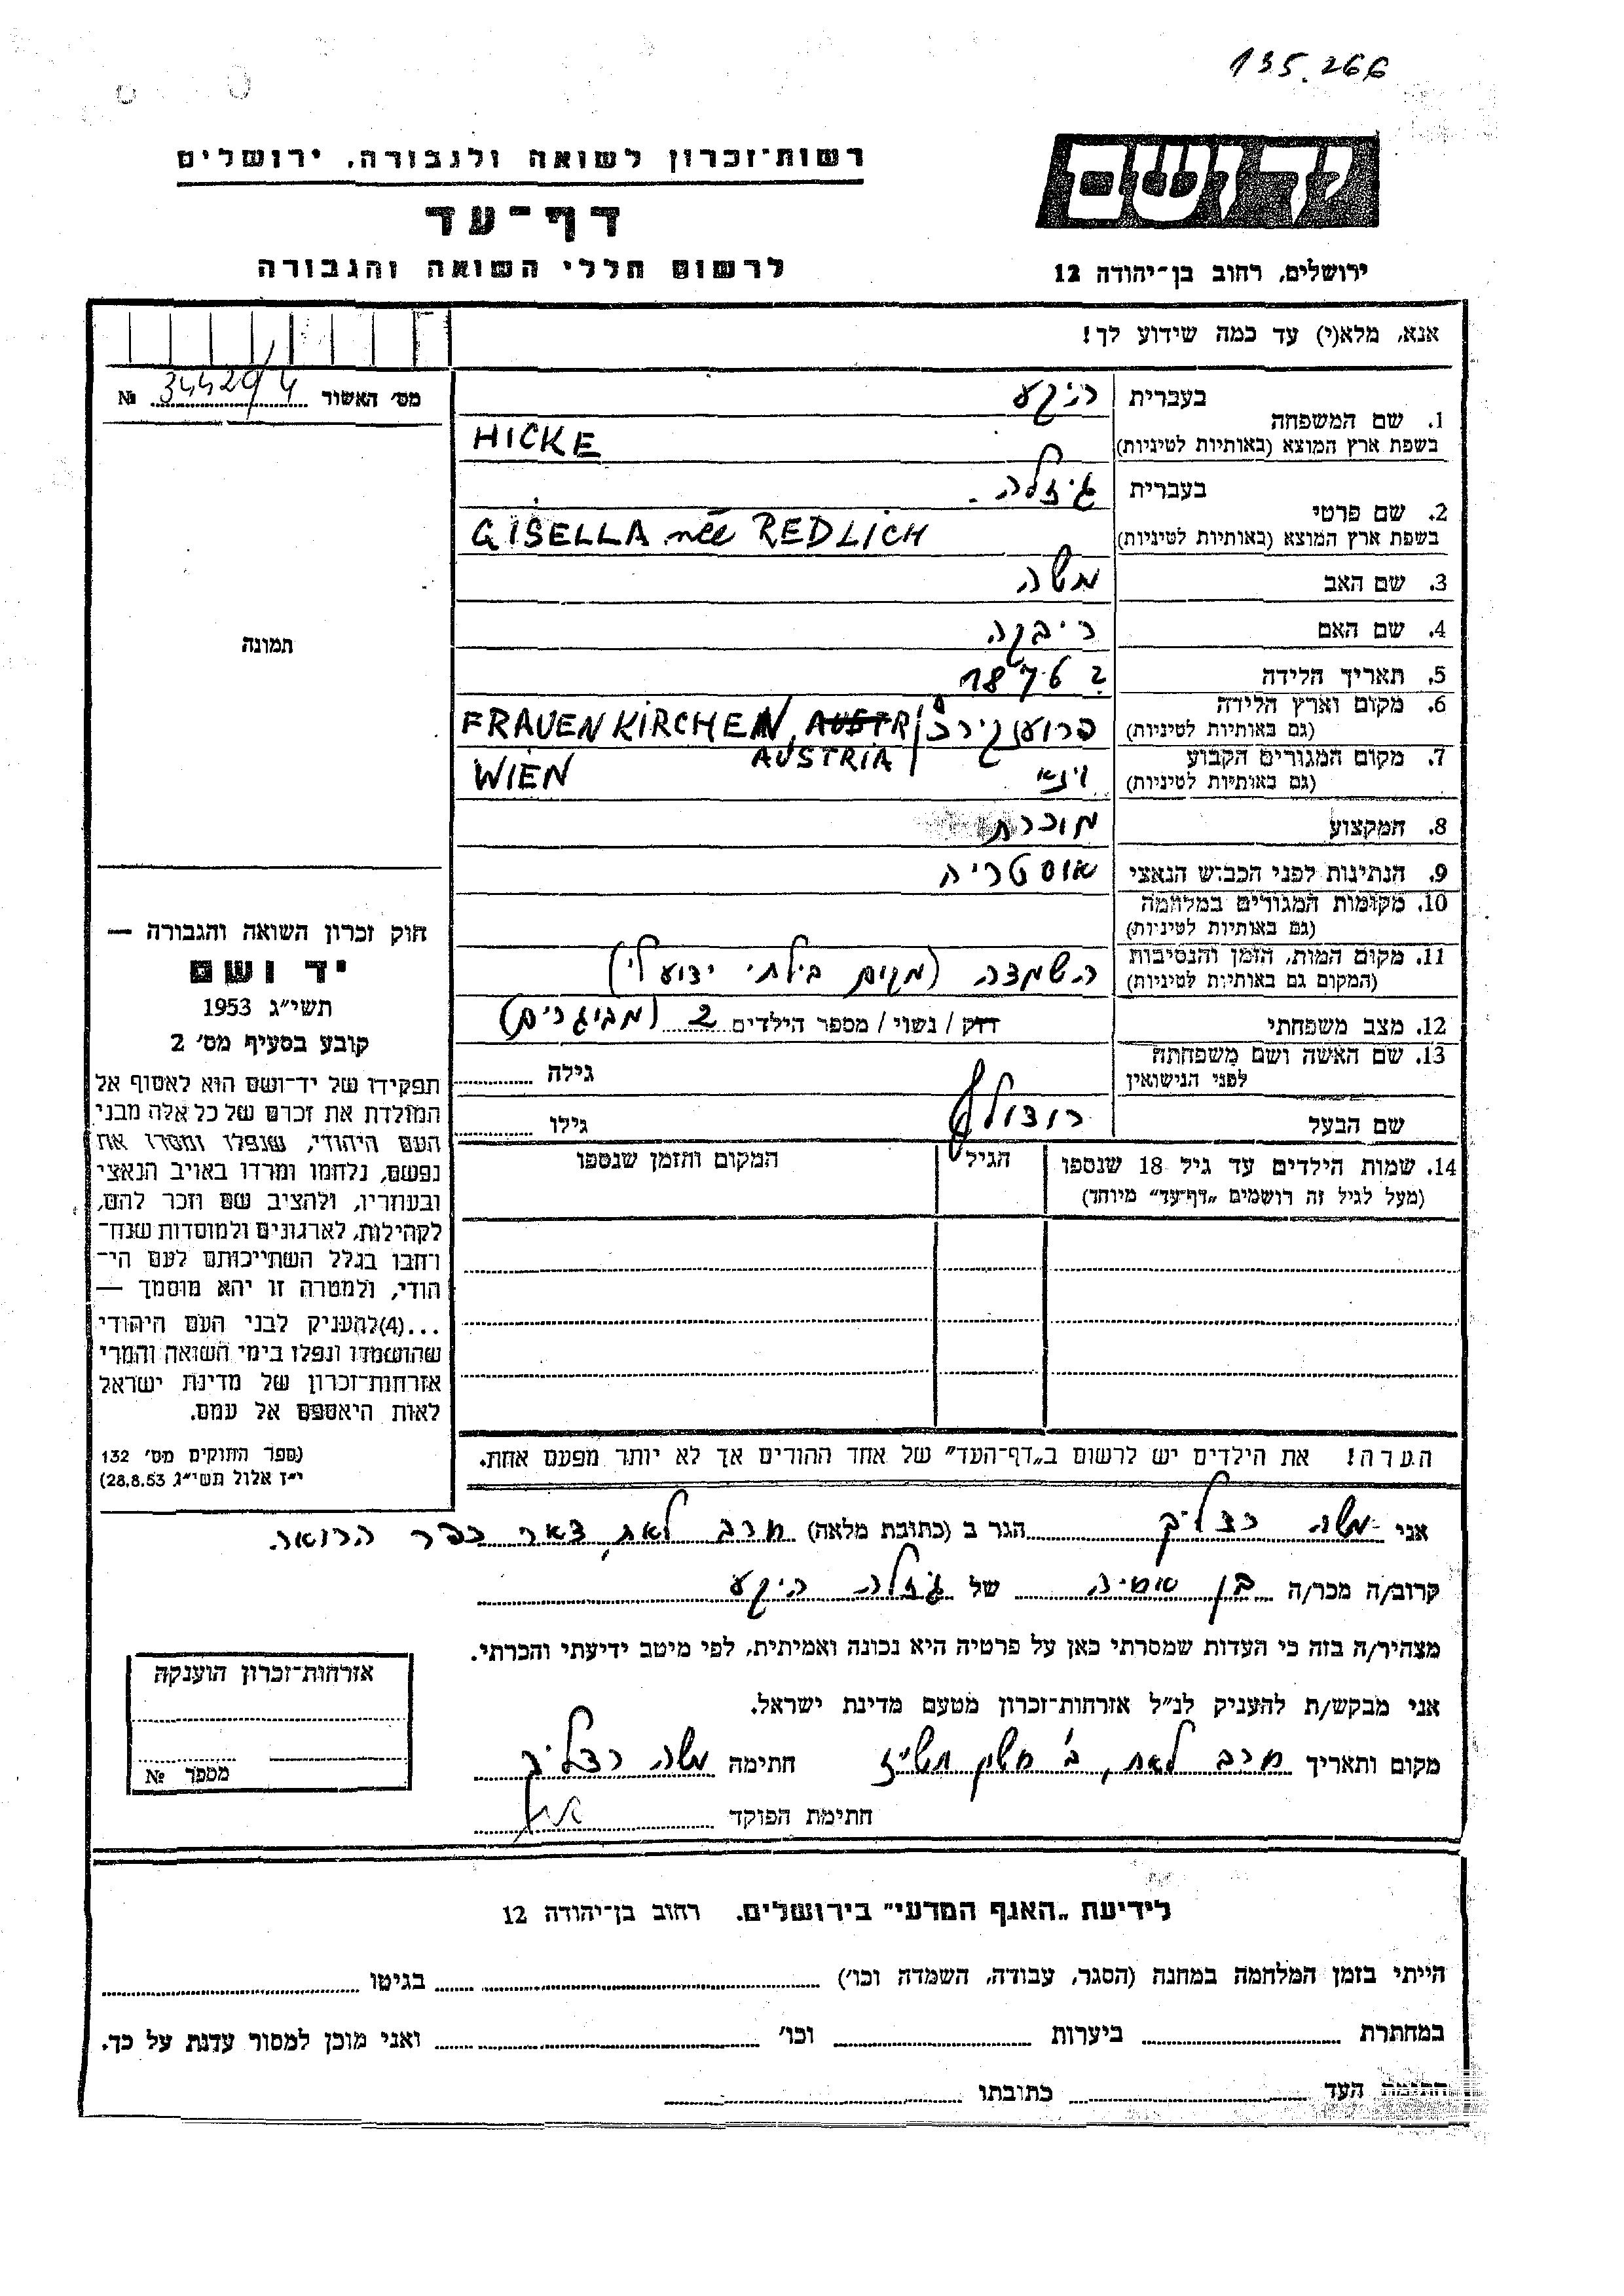 135.266
רשות־זכרון לשואה ולגבורה, ירושלים
יד ושם
דף־עד
לרשום חללי השואה והגבורה
ירושלים, רחוב בן־יהודה 12
אנא, מלא(י) עד כמה שידוע לך!
מס' האשור 34429/4 №
1. שם המשפחה
בעברית היקע
בשפת ארץ המוצא (באותיות לטיניות) HICKE
2. שם פרטי
בעברית גיזלה.
בשפת ארץ המוצא (באותיות לטיניות) GISELLA née REDLICH
3. שם האב משה
4. שם האם ריבקה
5. תאריך הלידה 1876 ?
6. מקום וארץ הלידה
(גם באותיות לטיניות) FRAUENKIRCHEN, AUSTR
AUSTRIA
7. מקום המגורים הקבוע
(גם באותיות לטיניות) וינא WIEN
8. המקצוע מוכרת
9. הנתינות לפני הכבוש הנאצי אוסטריה
10. מקומות המגורים במלחמה
(גם באותיות לטיניות)
11. מקום המות, הזמן והנסיבות
(המקום גם באותיות לטיניות) השמדה (מקום בילתי ידוע לי)
12. מצב משפחתי רוק / נשוי / מספר הילדים 2 (מבוגרים)
13. שם האשה ושם משפחתה
לפני הנישואין גילה
שם הבעל רודולף גילו
14. שמות הילדים עד גיל 18 שנספו הגיל המקום והזמן שנספו
(מעל לגיל זה רושמים „דף־עד" מיוחד)
תמונה
חוק זכרון השואה והגבורה —
יד ושם
תשי״ג 1953
קובע בסעיף מס' 2
תפקידו של יד־ושם הוא לאסוף אל
המולדת את זכרם של כל אלה מבני
העם היהודי, שנפלו ומסרו את
נפשם, נלחמו ומרדו באויב הנאצי
ובעוזריו, ולהציב שם וזכר להם,
לקהילות, לארגונים ולמוסדות שנח־
רבו בגלל השתייכותם לעם הי־
הודי, ולמטרה זו יהא מוסמך —
...(4)להעניק לבני העם היהודי
שהושמדו ונפלו בימי השואה והמרי
אזרחות־זכרון של מדינת ישראל
לאות היאספם אל עמם.
(ספר החוקים מס' 132
י״ז אלול תשי״ג 28.8.53)
הערה! את הילדים יש לרשום ב„דף־העד" של אחד ההורים אך לא יותר מפעם אחת.
אני משה רדליך הגר ב (כתובת מלאה) מרב לאת, דאר כפר הרואה.
קרוב/ה מכר/ה בן אחיה של גיזלה היקע
מצהיר/ה בזה כי העדות שמסרתי כאן על פרטיה היא נכונה ואמיתית, לפי מיטב ידיעתי והכרתי.
אני מבקש/ת להעניק לנ״ל אזרחות־זכרון מטעם מדינת ישראל.
מקום ותאריך חתימה משה רדליך
חתימת הפוקד
אזרחות־זכרון הוענקה
מספר №
לידיעת „האגף המדעי" בירושלים. רחוב בן־יהודה 12
הייתי בזמן המלחמה במחנה (הסגר, עבודה, השמדה וכו') בגיטו
במחתרת ביערות וכו' ואני מוכן למסור עדות על כך.
חתימת העד כתובתו